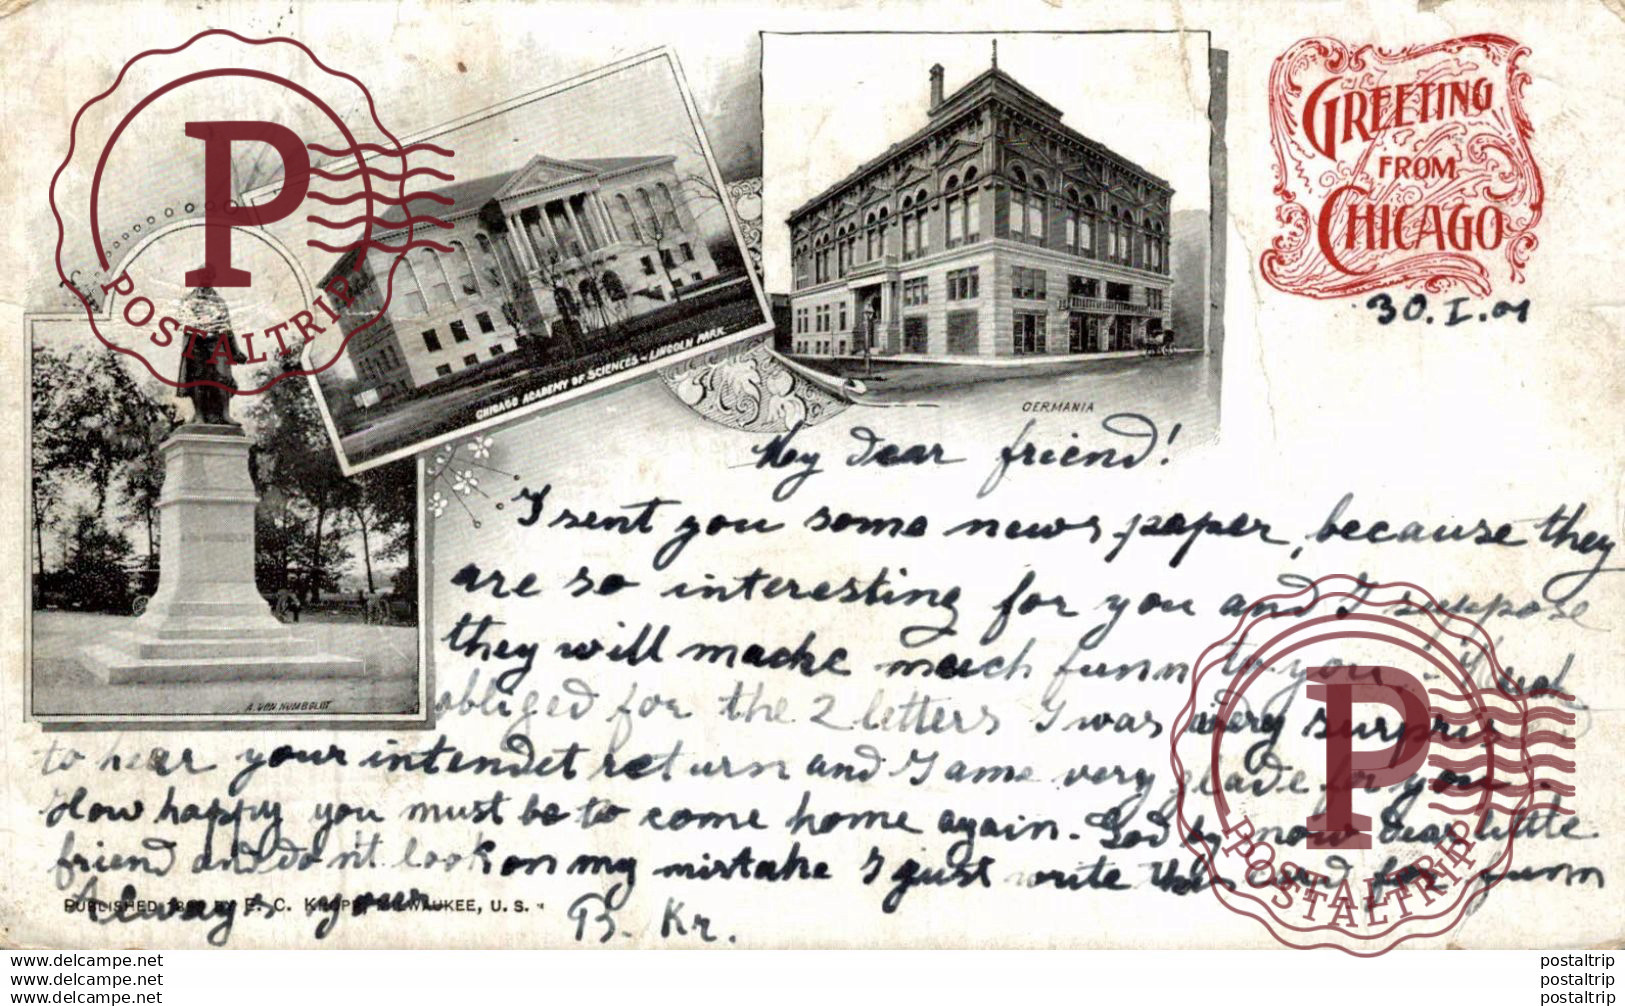 GREETING
FROM
CHICAGO
30. I. 01
CHICAGO ACADEMY OF SCIENCES - LINCOLN PARK.
GERMANIA
A. VON HUMBOLDT
A. VON HUMBOLDT
My dear friend!
I sent you some news paper, because they
are so interesting for you and I suppose
they will macke much funn to you.
obliged for the 2 letters I was very surpris
to hear your intendet return and I ame very glade for you
How happy you must be to come home again. God by now dear little
friend and don't look on my mistake I just write this card for funn
Always your
B. Kr.
PUBLISHED BY E. C. KROPP, MILWAUKEE, U. S.
P
POSTALTRIP
P
POSTALTRIP
POSTALTRIP
www.delcampe.net
www.delcampe.net
www.delcampe.net
postaltrip
postaltrip
postaltrip